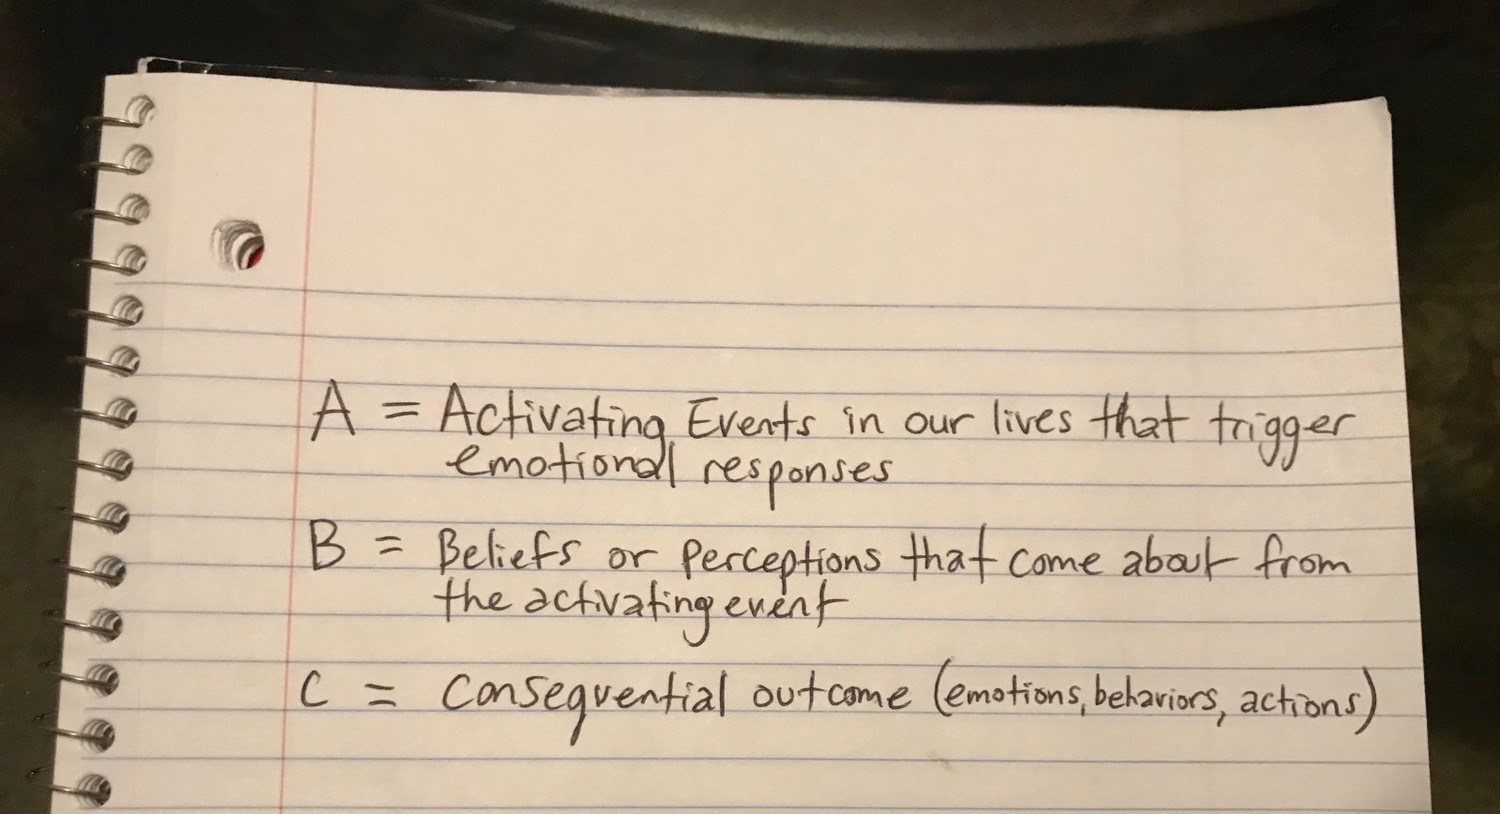 A = Activating Events in our lives that trigger
emotional responses
B = Beliefs or perceptions that come about from
the activating event
C = Consequential outcome (emotions, behaviors, actions)